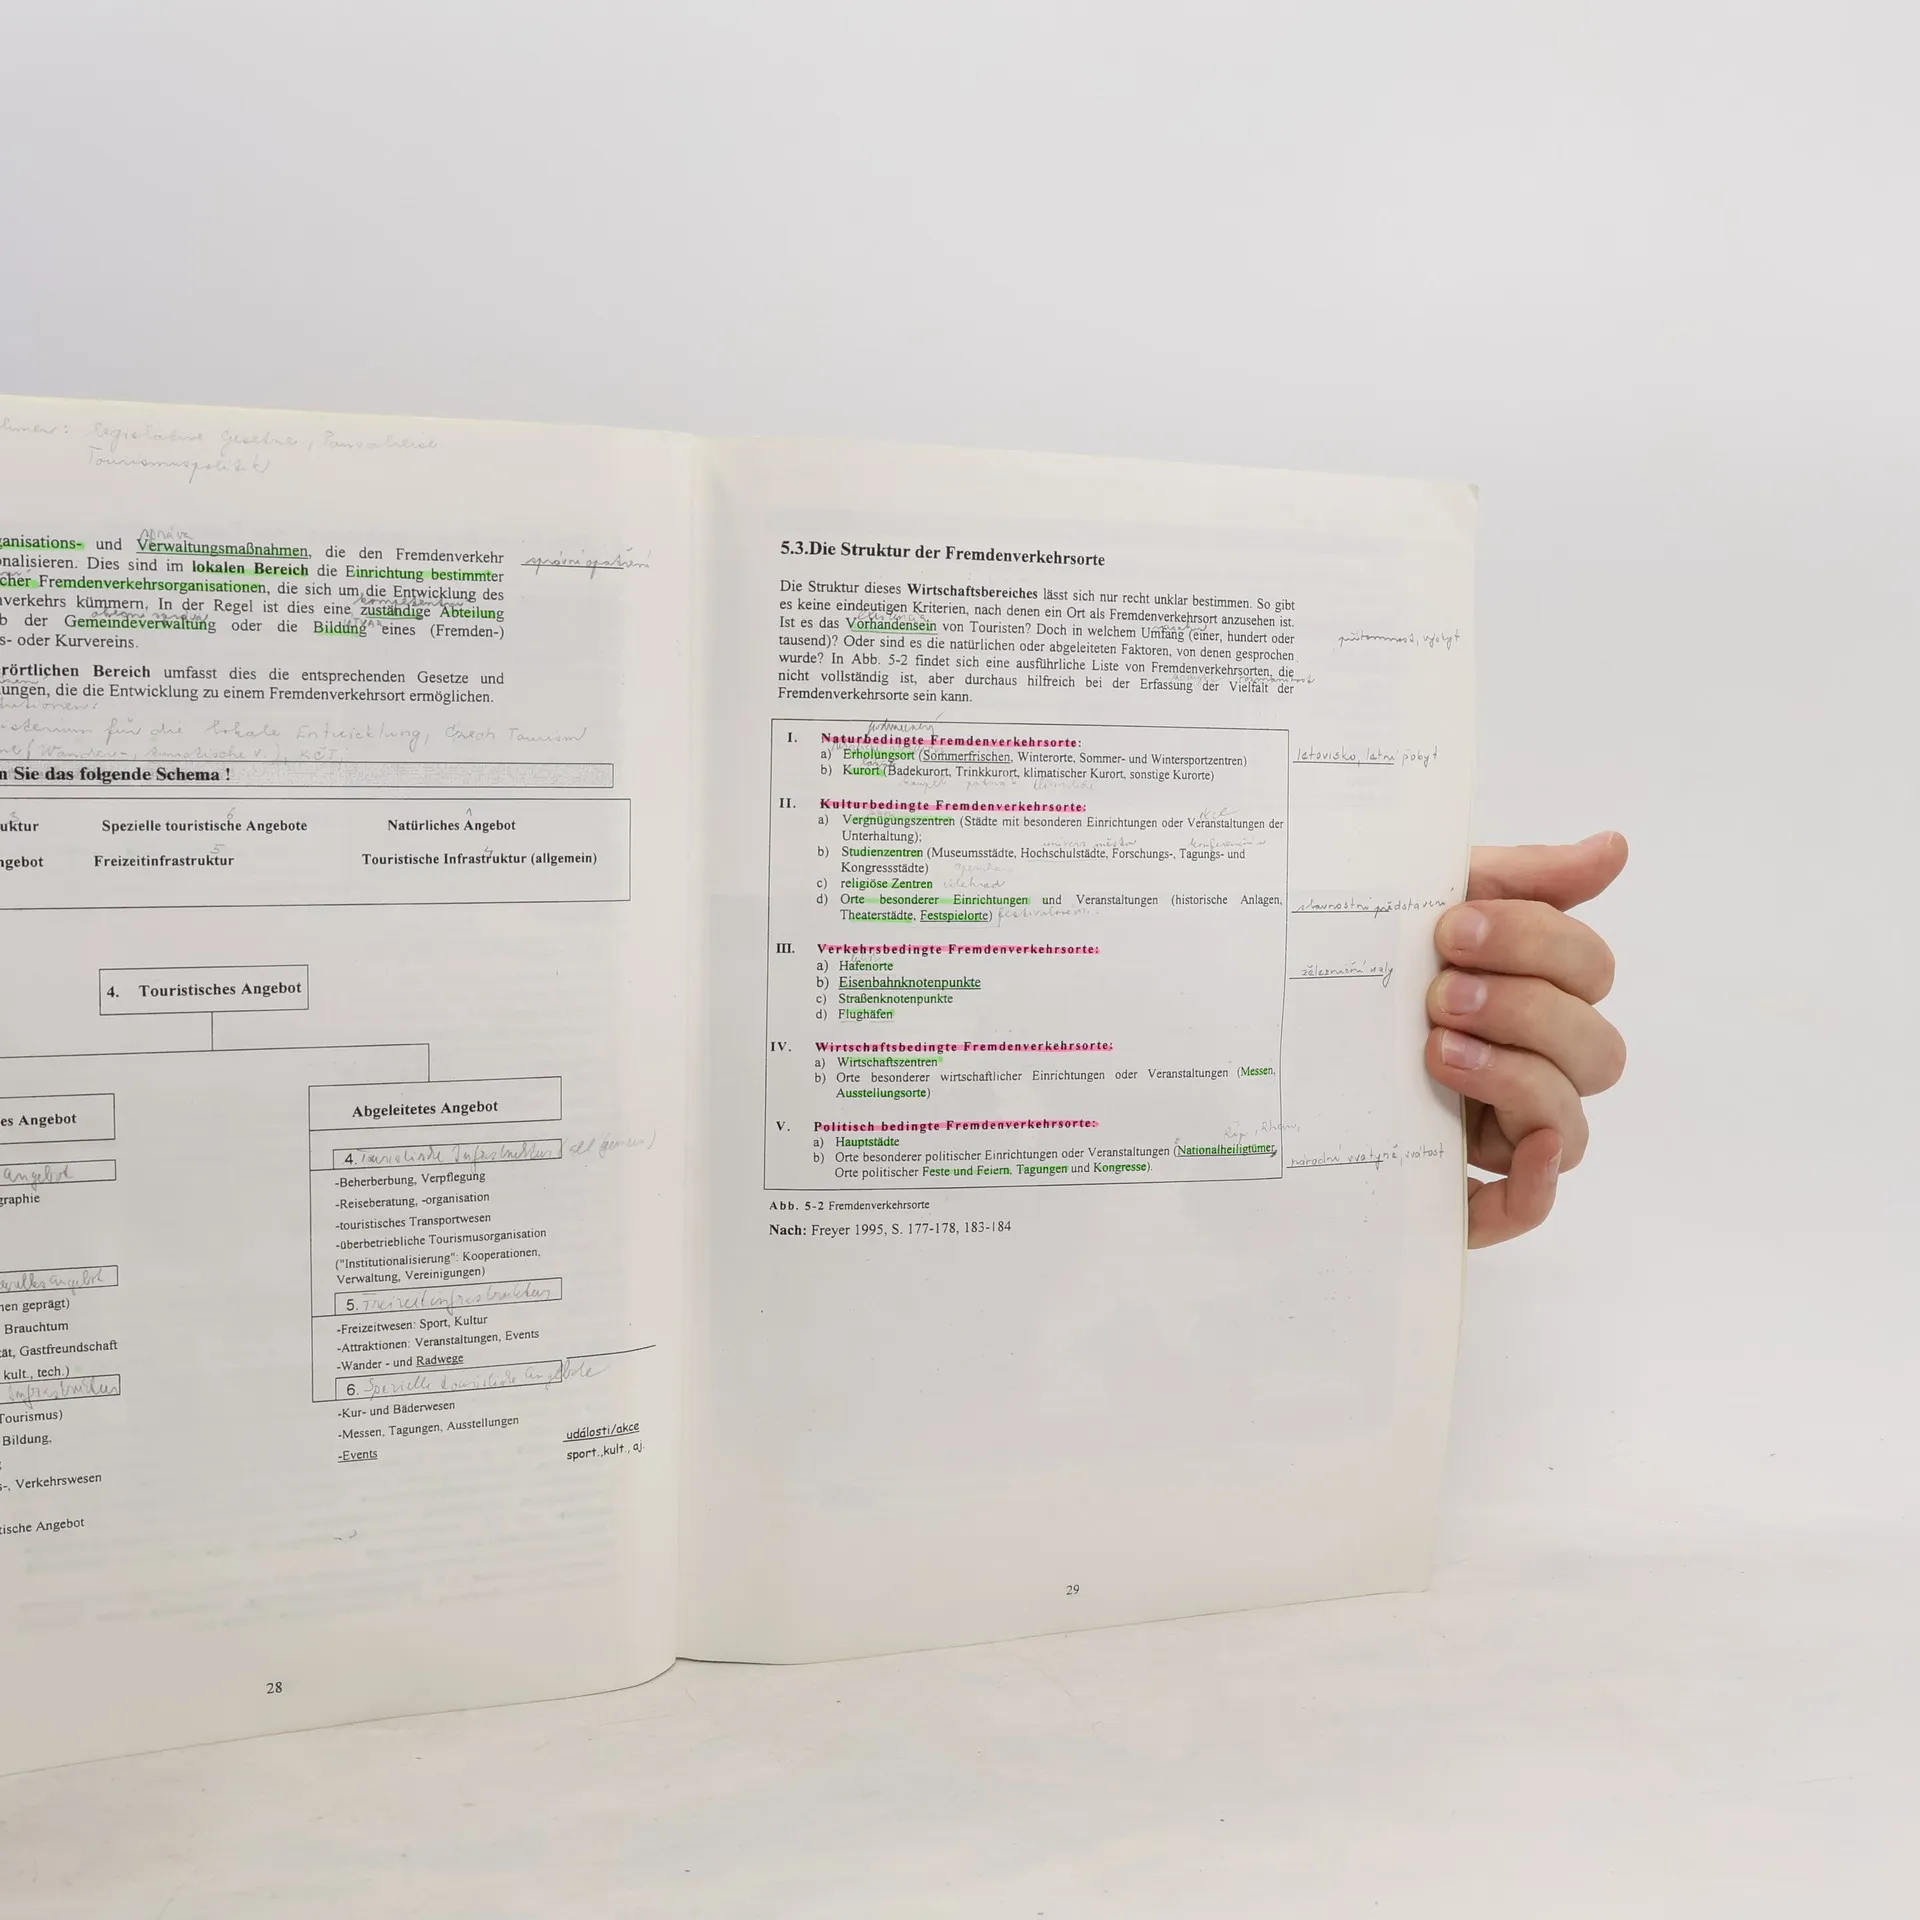 legislative Gesetze,
Tourismuspolitik
správa
ganisations- und Verwaltungsmaßnahmen, die den Fremdenverkehr
správní opatření
onalisieren. Dies sind im lokalen Bereich die Einrichtung bestimmter
cher Fremdenverkehrsorganisationen, die sich um die Entwicklung des
nverkehrs kümmern. In der Regel ist dies eine zuständige Abteilung
b der Gemeindeverwaltung oder die Bildung eines (Fremden-)
s- oder Kurvereins.
rörtlichen Bereich umfasst dies die entsprechenden Gesetze und
ungen, die die Entwicklung zu einem Fremdenverkehrsort ermöglichen.
für die lokale Entwicklung, Czech Tourism
KČT,
n Sie das folgende Schema !
3 6 1
uktur Spezielle touristische Angebote Natürliches Angebot
5 4
ngebot Freizeitinfrastruktur Touristische Infrastruktur (allgemein)
4. Touristisches Angebot
es Angebot Abgeleitetes Angebot
Angebot
4. Touristische Infrastruktur (allgemein)
graphie
-Beherberbung, Verpflegung
-Reiseberatung, -organisation
-touristisches Transportwesen
-überbetriebliche Tourismusorganisation
("Institutionalisierung": Kooperationen,
Verwaltung, Vereinigungen)
Angebot
5. Freizeitinfrastruktur
nen geprägt)
Brauchtum
tät, Gastfreundschaft
kult., tech.)
-Freizeitwesen: Sport, Kultur
-Attraktionen: Veranstaltungen, Events
-Wander - und Radwege
Infrastruktur
6. Spezielle touristische Angebote
Tourismus)
Bildung,
s-, Verkehrswesen
tische Angebot
-Kur- und Bäderwesen
-Messen, Tagungen, Ausstellungen
-Events
události/akce
sport.,kult., aj.
28
5.3.Die Struktur der Fremdenverkehrsorte
Die Struktur dieses Wirtschaftsbereiches lässt sich nur recht unklar bestimmen. So gibt
es keine eindeutigen Kriterien, nach denen ein Ort als Fremdenverkehrsort anzusehen ist.
Ist es das Vorhandensein von Touristen? Doch in welchem Umfang (einer, hundert oder
přítomnost, výskyt
tausend)? Oder sind es die natürlichen oder abgeleiteten Faktoren, von denen gesprochen
wurde? In Abb. 5-2 findet sich eine ausführliche Liste von Fremdenverkehrsorten, die
nicht vollständig ist, aber durchaus hilfreich bei der Erfassung der Vielfalt der
Fremdenverkehrsorte sein kann.
I. Naturbedingte Fremdenverkehrsorte:
a) Erholungsort (Sommerfrischen, Winterorte, Sommer- und Wintersportzentren)
letovisko, letní pobyt
b) Kurort (Badekurort, Trinkkurort, klimatischer Kurort, sonstige Kurorte)
II. Kulturbedingte Fremdenverkehrsorte:
a) Vergnügungszentren (Städte mit besonderen Einrichtungen oder Veranstaltungen der
Unterhaltung);
b) Studienzentren (Museumsstädte, Hochschulstädte, Forschungs-, Tagungs- und
Kongressstädte)
c) religiöse Zentren Velehrad
d) Orte besonderer Einrichtungen und Veranstaltungen (historische Anlagen,
slavnostní představení
Theaterstädte, Festspielorte)
III. Verkehrsbedingte Fremdenverkehrsorte:
a) Hafenorte
b) Eisenbahnknotenpunkte
železniční uzly
c) Straßenknotenpunkte
d) Flughäfen
IV. Wirtschaftsbedingte Fremdenverkehrsorte:
a) Wirtschaftszentren
b) Orte besonderer wirtschaftlicher Einrichtungen oder Veranstaltungen (Messen,
Ausstellungsorte)
V. Politisch bedingte Fremdenverkehrsorte:
Říp,
a) Hauptstädte
b) Orte besonderer politischer Einrichtungen oder Veranstaltungen (Nationalheiligtümer,
národní svatyně, svátost
Orte politischer Feste und Feiern, Tagungen und Kongresse).
Abb. 5-2 Fremdenverkehrsorte
Nach: Freyer 1995, S. 177-178, 183-184
29